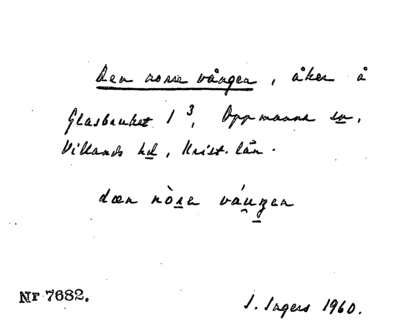 Den norra vången, åker å
Glasbruket 1³, Oppmanna sn,
Villands hd, Krist. län.
dæn nòra váuŋen
Nr 7682.
I. Ingers 1960.